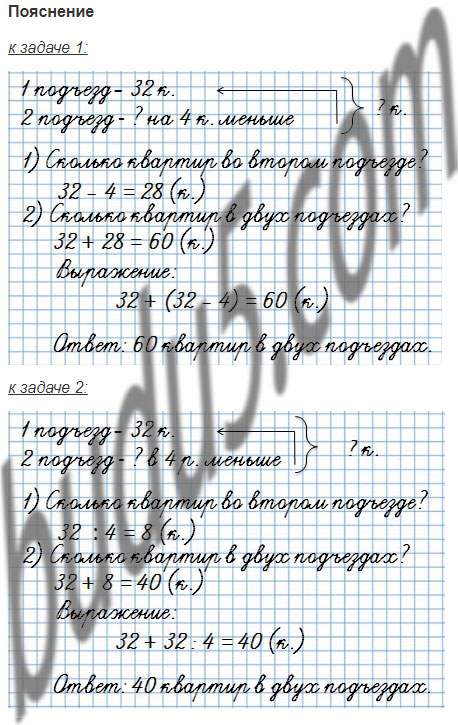 Пояснение
к задаче 1:
1 подъезд - 32 к.
2 подъезд - ? на 4 к. меньше
? к.
1) Сколько квартир во втором подъезде?
32 - 4 = 28 (к.)
2) Сколько квартир в двух подъездах?
32 + 28 = 60 (к.)
Выражение:
32 + (32 - 4) = 60 (к.)
Ответ: 60 квартир в двух подъездах.
к задаче 2:
1 подъезд - 32 к.
2 подъезд - ? в 4 р. меньше
? к.
1) Сколько квартир во втором подъезде?
32 : 4 = 8 (к.)
2) Сколько квартир в двух подъездах?
32 + 8 = 40 (к.)
Выражение:
32 + 32 : 4 = 40 (к.)
Ответ: 40 квартир в двух подъездах.